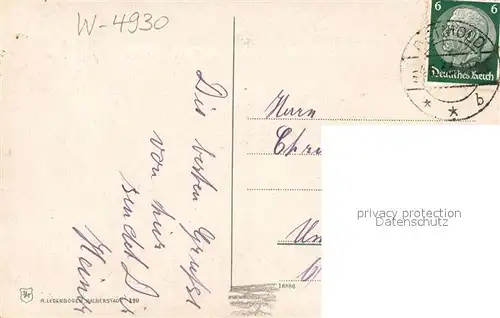 W-4930
6 6
DETMOLD
Deutsches Reich
b
Die besten Grüße
von hier
sendet Dir
Heinz
Herrn
Chr
Un
privacy protection
Datenschutz
R. LEDERBOGEN, HALBERSTADT 190
18886